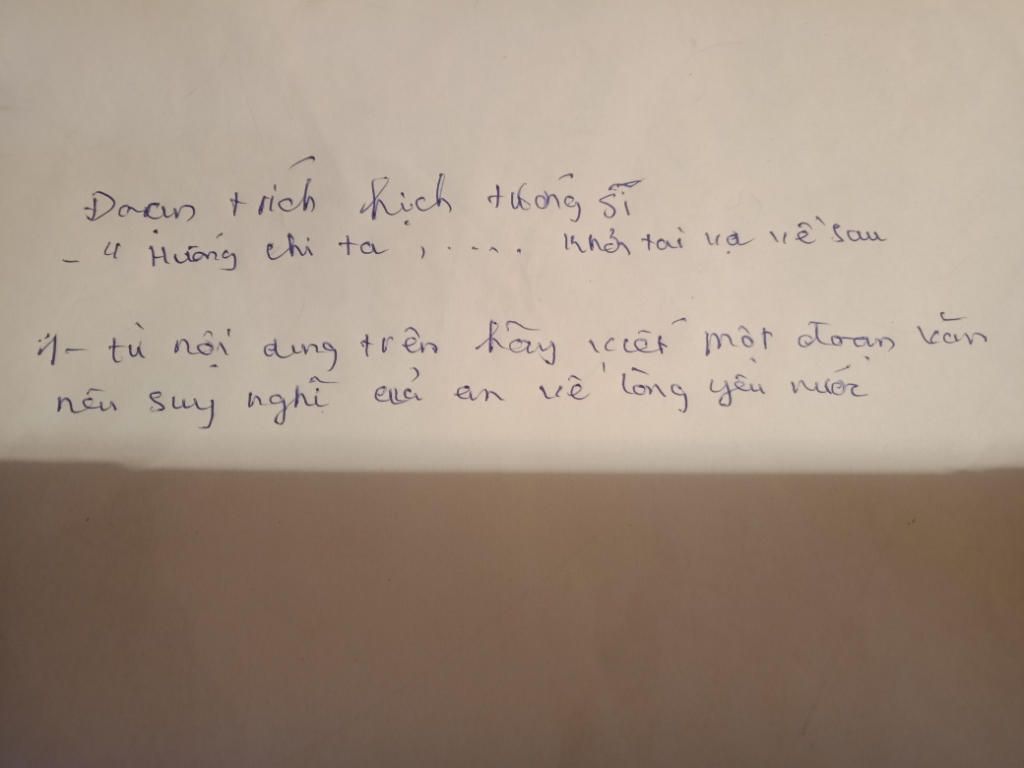 Đoạn trích hịch tướng sĩ
- " Huống chi ta , ..... khỏi tai vạ về sau
1- từ nội dung trên hãy viết một đoạn văn
nêu suy nghĩ của en về lòng yêu nước